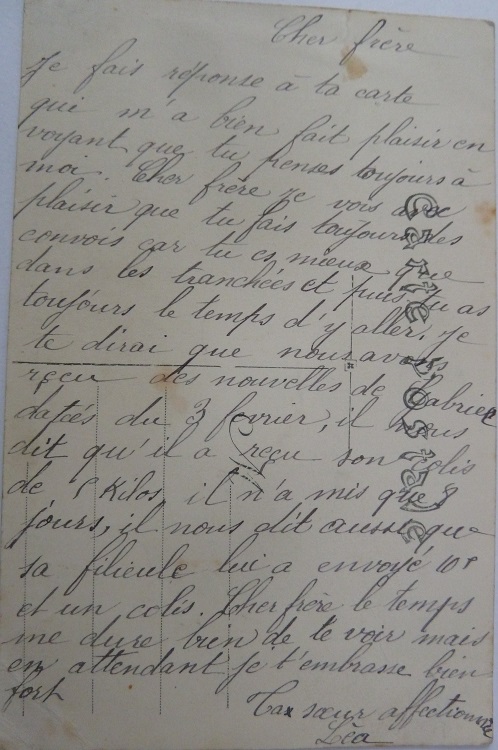 Cher frère
Je fais réponse à ta carte
qui m'a bien fait plaisir en
voyant que tu penses toujours à
moi. Cher frère je vois avec
plaisir que tu fais toujours des
convois car tu es mieux que
dans les tranchées et puis tu as
toujours le temps d'y aller. Je
te dirai que nous avons
reçu des nouvelles de Gabriel
datées du 3 fevrier, il nous
dit qu'il a reçu son colis
de 5 Kilos il n'a mis que 8
jours, il nous dit aussi que
sa filieule lui a envoyé 10f
et un colis. Cher frère le temps
me dure bien de te voir mais
en attendant je t'embrasse bien
fort
Ta sœur affectionnée
Léa
Carte Postale